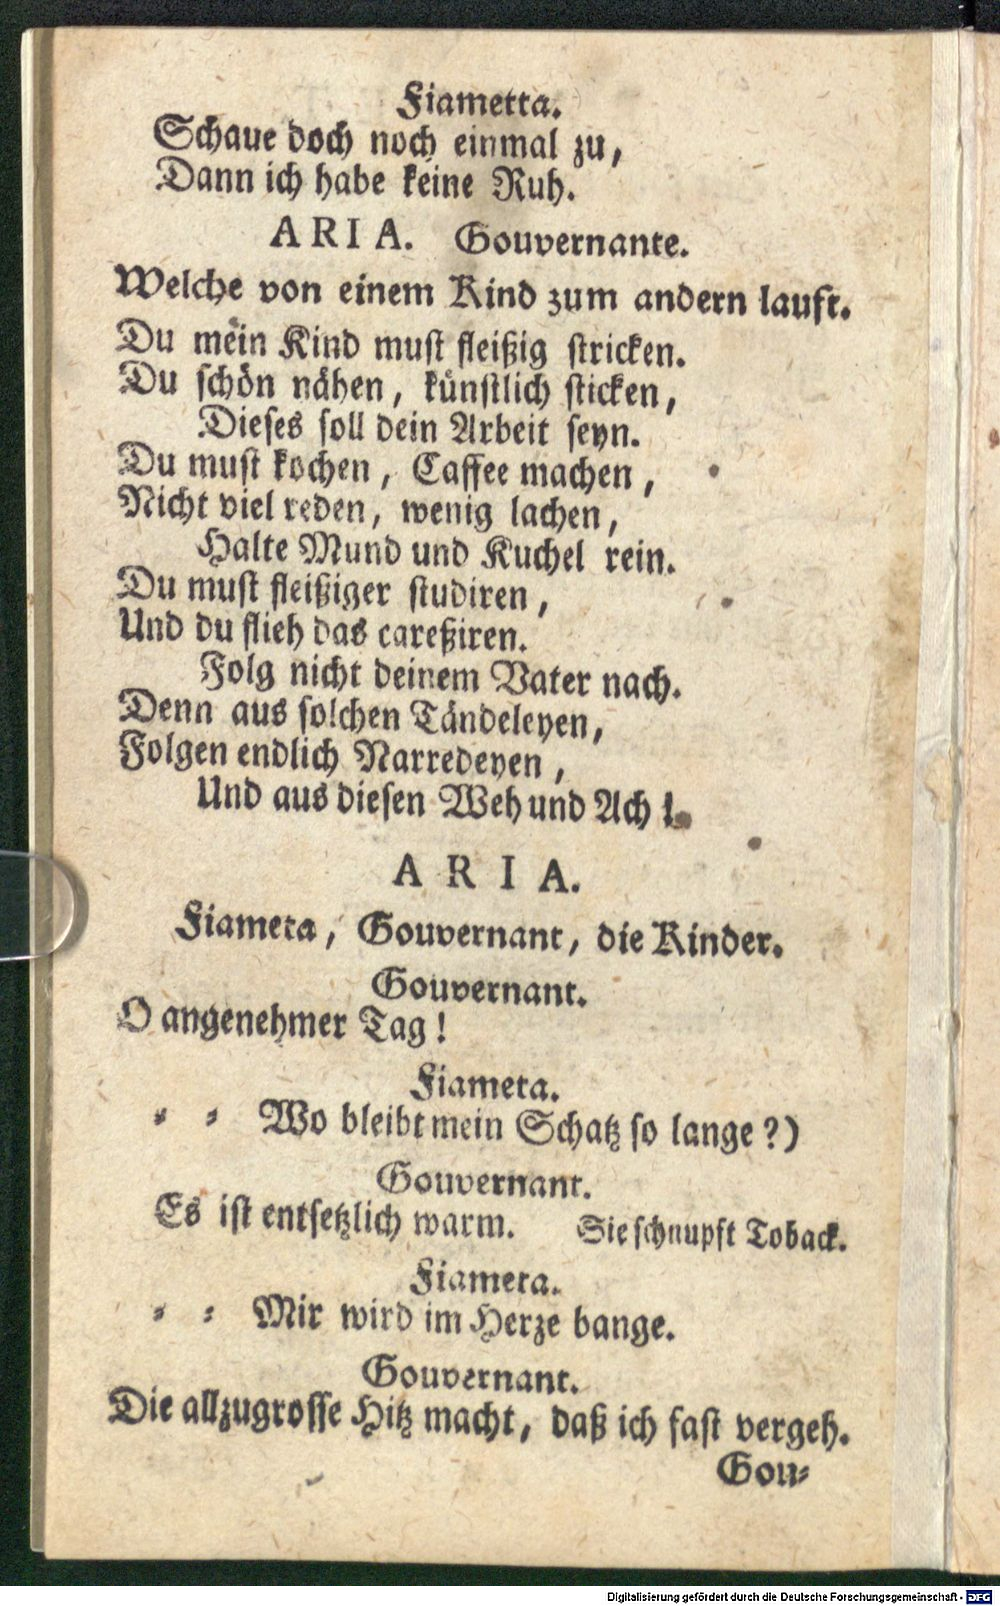 Fiametta.
Schaue doch noch einmal zu,
Dann ich habe keine Ruh.
ARIA. Gouvernante.
Welche von einem Kind zum andern lauft.
Du mein Kind must fleißig stricken.
Du schön nähen, künstlich sticken,
Dieses soll dein Arbeit seyn.
Du must kochen, Caffee machen,
Nicht viel reden, wenig lachen,
Halte Mund und Kuchel rein.
Du must fleißiger studiren,
Und du flieh das careßiren.
Folg nicht deinem Vater nach.
Denn aus solchen Tändeleyen,
Folgen endlich Narredeyen,
Und aus diesen Weh und Ach!
ARIA.
Fiameta, Gouvernant, die Kinder.
Gouvernant.
O angenehmer Tag!
Fiameta.
= = Wo bleibt mein Schatz so lange?)
Gouvernant.
Es ist entsetzlich warm. Sie schnupft Toback.
Fiameta.
= = Mir wird im Herze bange.
Gouvernant.
Die allzugrosse Hitz macht, daß ich fast vergeh.
Gou=
Digitalisierung gefördert durch die Deutsche Forschungsgemeinschaft - DFG